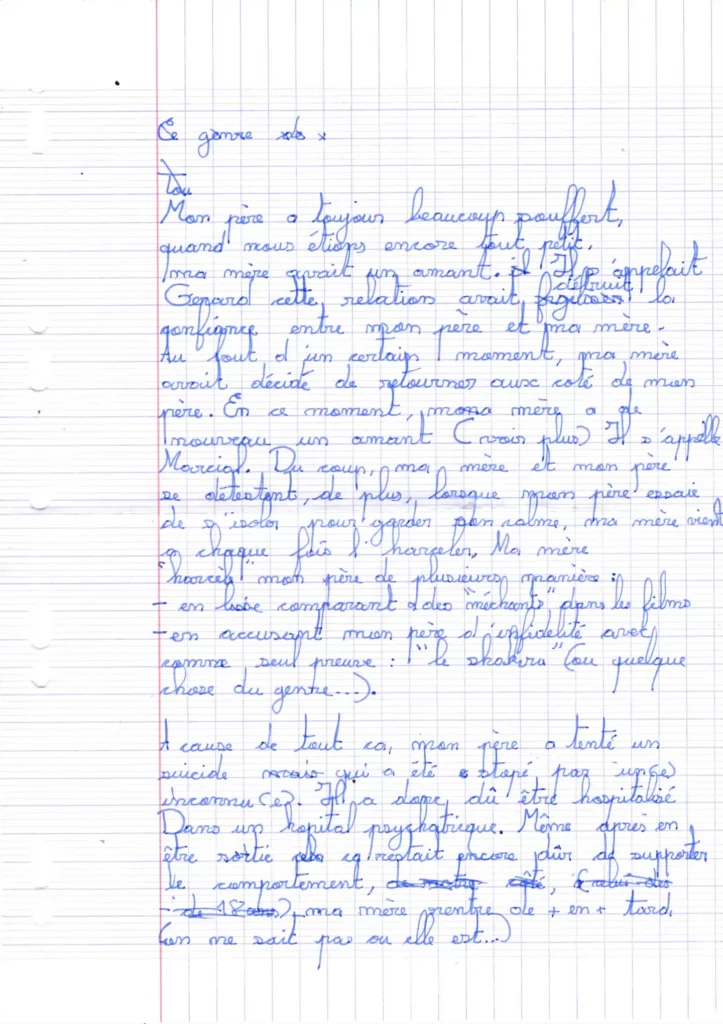 Ce genre
Mon père a toujour beaucoup souffert,
quand nous étions encore tout petit.
ma mère avait un amant. Il s'appelait
Gerard cette relation avait détruit la
confiance entre mon père et ma mère.
Au bout d'un certain moment, ma mère
avait décidé de retourner aux coté de mon
père. En ce moment, mona mère a de
nouveau un amant (voir plus) Il s'appelle
Marcial. Du coup, ma mère et mon père
se détestent, de plus, lorsque mon père essaie
de s'isoler pour garder son calme, ma mère vient
a chaque fois l'harceler. Ma mère
"harcèle" mon père de plusieurs manière :
- en comparant a des "méchants" dans les films
- en accusant mon père d'infidelité avec
comme seul preuve : "le shakira" (ou quelque
chose du genre...).
A cause de tout ca, mon père a tenté un
suicide qui a été stopé par un(e)
inconnu(e). Il a donc dû être hospitalisé
Dans un hopital psychatrique. Même après en
être sortie ca restait encore dûr de supporter
le comportement, ma mère rentre de + en + tard.
(on ne sait pas ou elle est...)